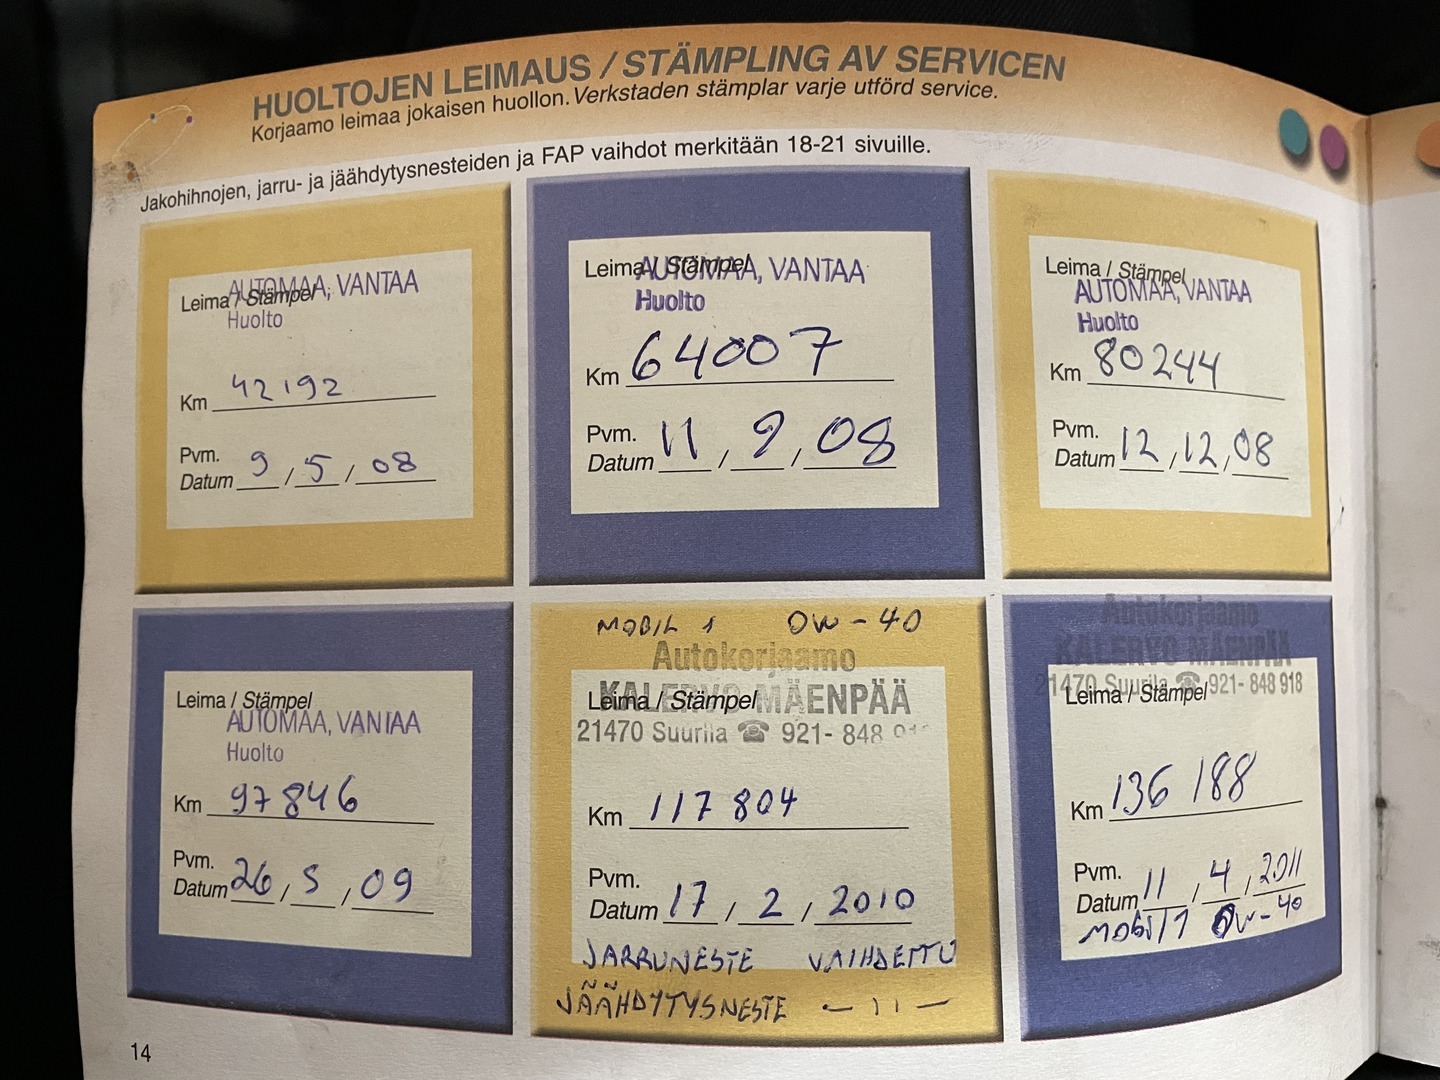 HUOLTOJEN LEIMAUS / STÄMPLING AV SERVICEN
Korjaamo leimaa jokaisen huollon. Verkstaden stämplar varje utförd service.
Jakohihnojen, jarru- ja jäähdytysnesteiden ja FAP vaihdot merkitään 18-21 sivuille.
Leima / Stämpel
AUTOMAA, VANTAA
Huolto
Km 42192
Pvm.
Datum 9 / 5 / 08
Leima / Stämpel
AUTOMAA, VANTAA
Huolto
Km 64007
Pvm.
Datum 11 / 9 / 08
Leima / Stämpel
AUTOMAA, VANTAA
Huolto
Km 80244
Pvm.
Datum 12 / 12 / 08
Leima / Stämpel
AUTOMAA, VANTAA
Huolto
Km 97846
Pvm.
Datum 26 / 5 / 09
MOBIL 1 0W-40
Autokorjaamo
KALERVO MÄENPÄÄ
Leima / Stämpel
21470 Suurila ☎ 921- 848
Km 117 804
Pvm.
Datum 17 / 2 / 2010
JARRUNESTE VAIHDETTU
JÄÄHDYTYSNESTE — 11 —
Autokorjaamo
KALERVO MÄENPÄÄ
21470 Suurila ☎ 921- 848 918
Leima / Stämpel
Km 136 188
Pvm.
Datum 11 / 4 / 2011
Mobil 1 0W-40
14